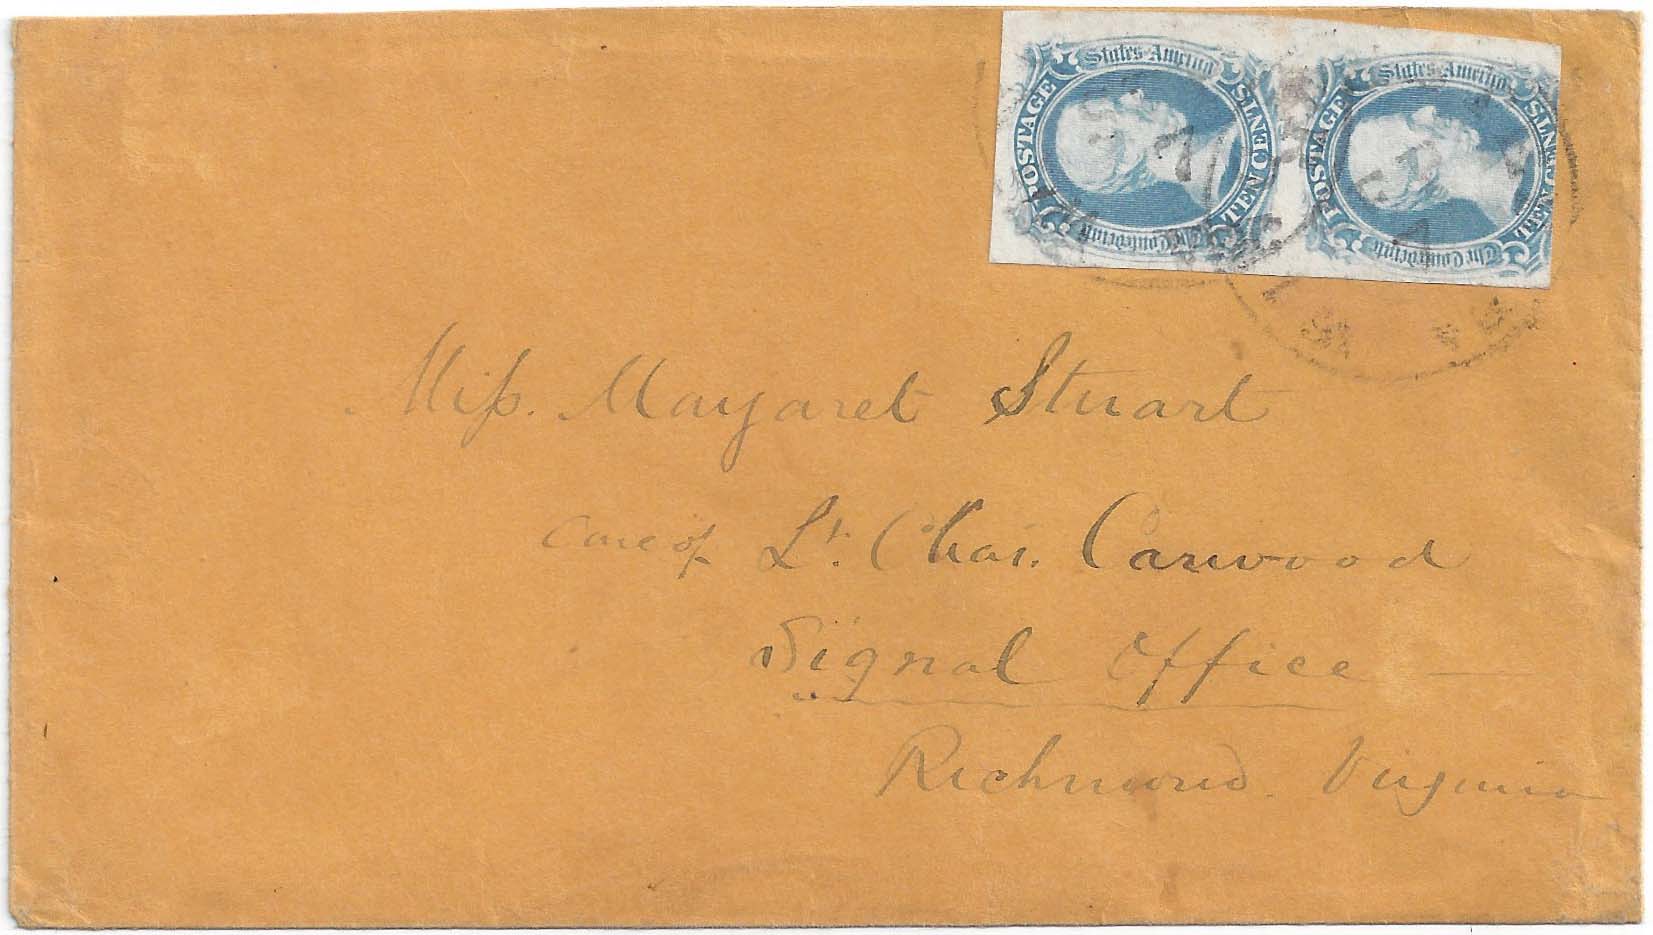 The Confederate States America
POSTAGE
TEN CENTS
The Confederate States America
POSTAGE
TEN CENTS
Miſs. Margaret Stuart
Care of Lt. Chas. Carwood
Signal Office
Richmond. Virginia